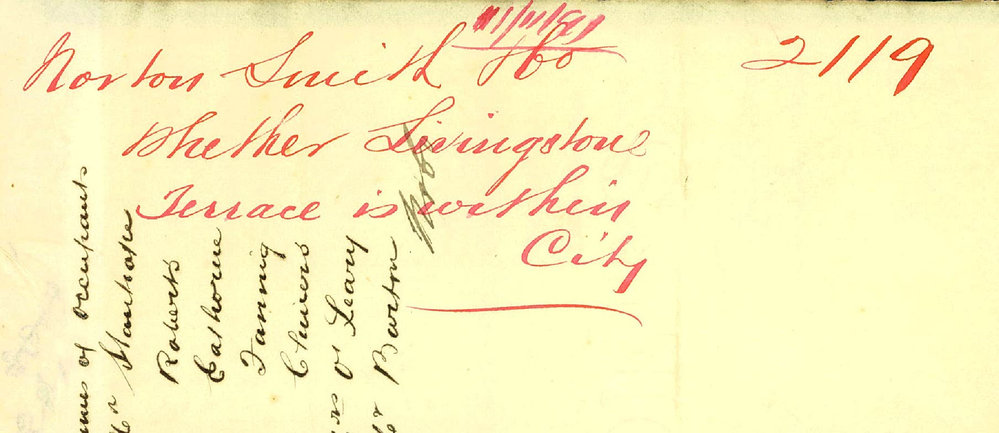 Norton Smith & Co
2119
Whether Livingstone
Terrace is within
City
of occupants
Stanhope
Roberts
Eathorne
Fanning
Chivers
O'Leary
Barton